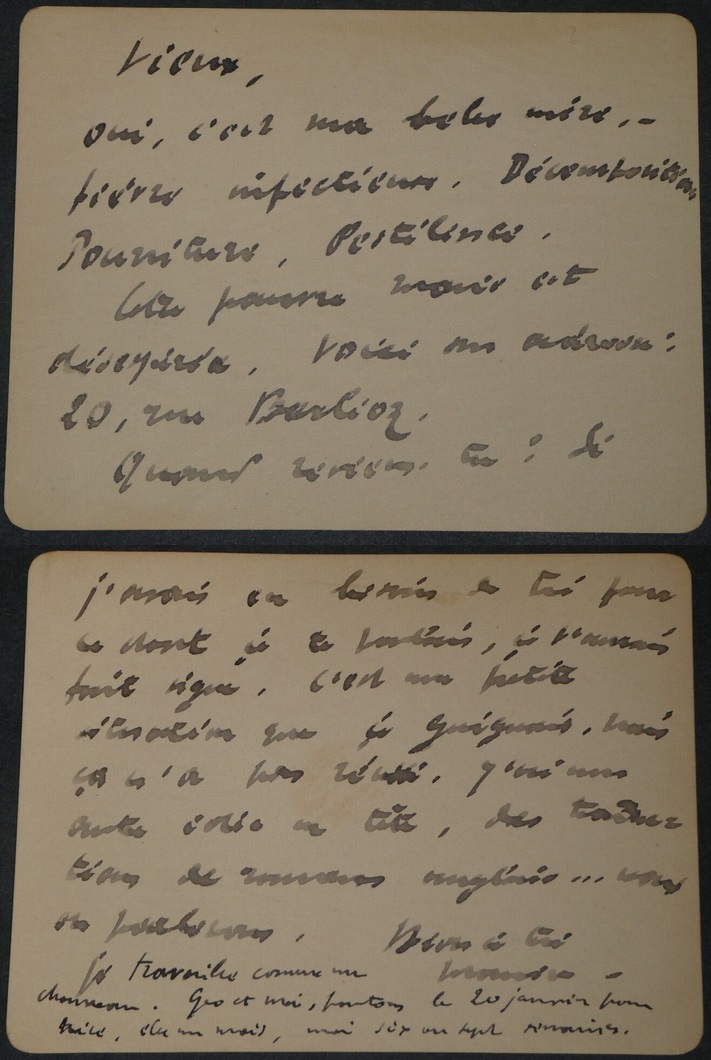 Vieux,
oui, c'est ma belle mère, -
fièvre infectieuse. Décomposition
Pourriture, Pestilence.
Cette pauvre marie est
désespérée. Voici son adresse :
20, rue Berlioz.
Quand reviens-tu ? Si
j'avais eu besoin de toi pour
ce dont je te parlais, je t'aurais
fait signe. C'est une petite
situation que je guignais, mais
ça n'a pas réussi. J'ai une
autre idée en tête, des traduc
tions de romans anglais... nous
en parlerons. Bien à toi
je travaille comme un
chameau. Geo et moi, partons le 20 janvier pour
Nice, elle un mois, moi six ou sept semaines.